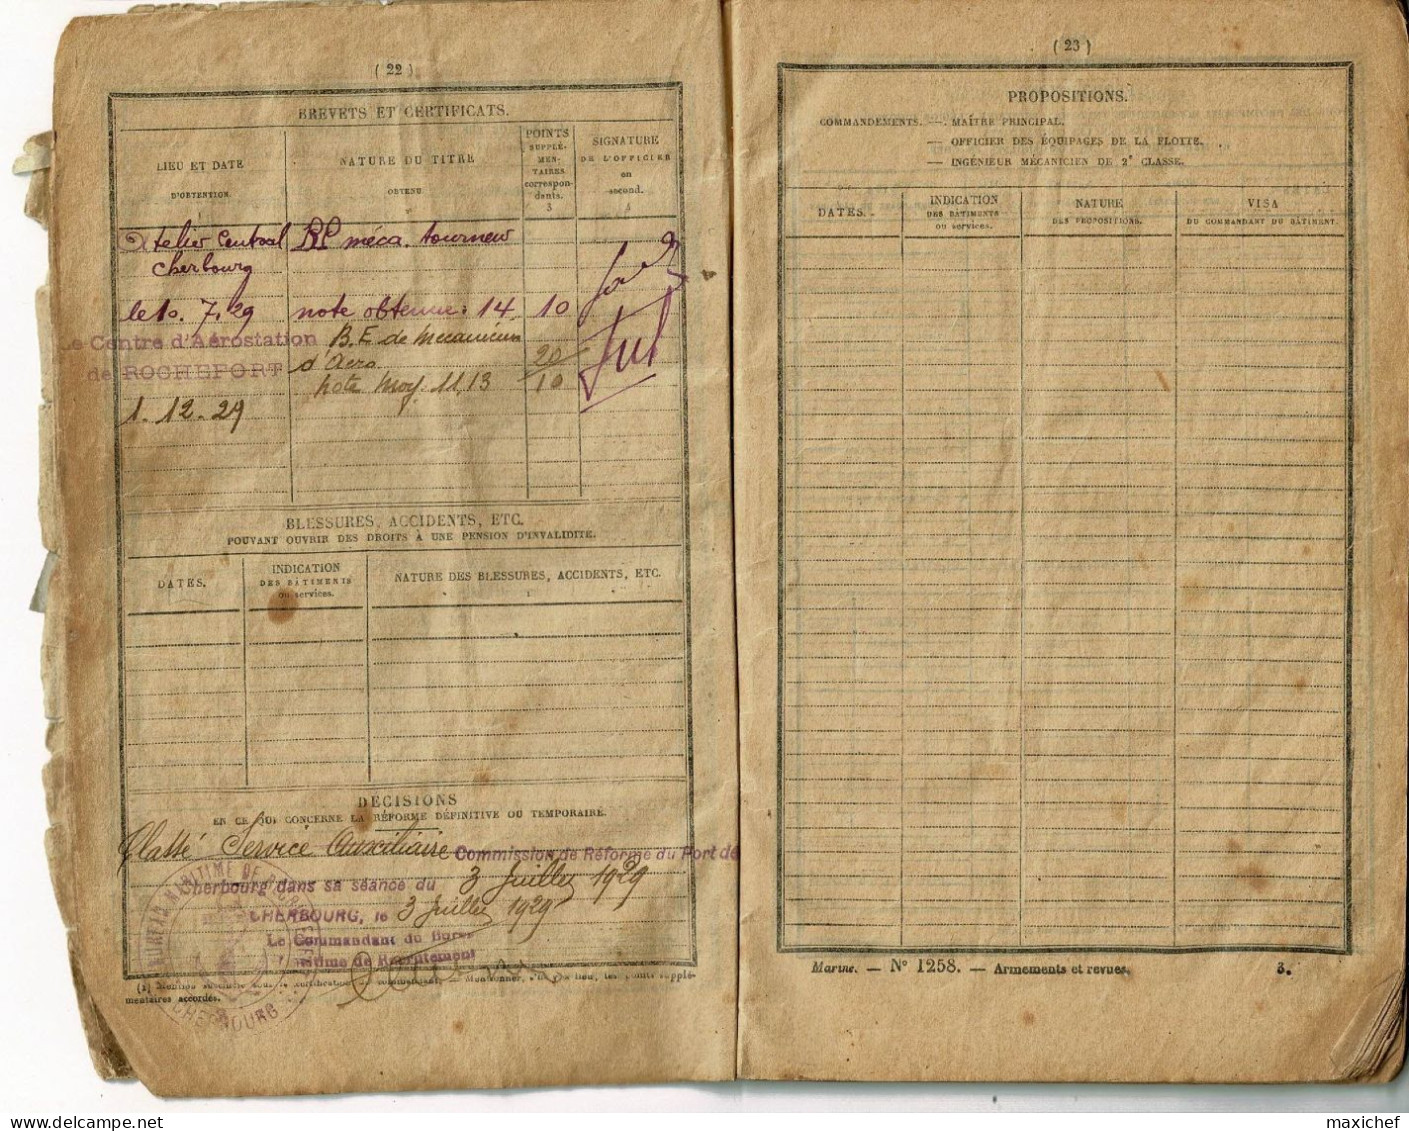 ( 22 )
BREVETS ET CERTIFICATS.
LIEU ET DATE
D'OBTENTION.
1
NATURE DU TITRE
OBTENU.
POINTS
SUPPLÉ-
MEN-
TAIRES
correspon-
dants.
3
SIGNATURE
DE L'OFFICIER
en
second.
4
Atelier Central
Cherbourg
BP méca. tourneur
le 10. 7. 29
note obtenue: 14
10
Le Centre d'Aérostation
de ROCHEFORT
1. 12. 29
B.E de Mecanicien
d'Aero
note Moy. 11,13
20
10
BLESSURES, ACCIDENTS, ETC.
POUVANT OUVRIR DES DROITS À UNE PENSION D'INVALIDITÉ.
DATES.
INDICATION
DES BÂTIMENTS
ou services.
NATURE DES BLESSURES, ACCIDENTS, ETC.
DÉCISIONS
EN CE QUI CONCERNE LA RÉFORME DÉFINITIVE OU TEMPORAIRE.
Classé Service Auxiliaire Commission de Réforme du Port de
Cherbourg dans sa séance du 3 Juillet 1929
CHERBOURG, le 3 Juillet 1929
Le Commandant du Bureau
Maritime de Recrutement
CHERBOURG
mentaires accordés.
( 23 )
PROPOSITIONS.
COMMANDEMENTS. — MAÎTRE PRINCIPAL.
— OFFICIER DES ÉQUIPAGES DE LA FLOTTE.
— INGÉNIEUR MÉCANICIEN DE 2e CLASSE.
DATES.
INDICATION
DES BÂTIMENTS
ou services.
NATURE
DES PROPOSITIONS.
VISA
DU COMMANDANT DU BÂTIMENT.
Marine. — N° 1258. — Armements et revues. 3.
maxichef